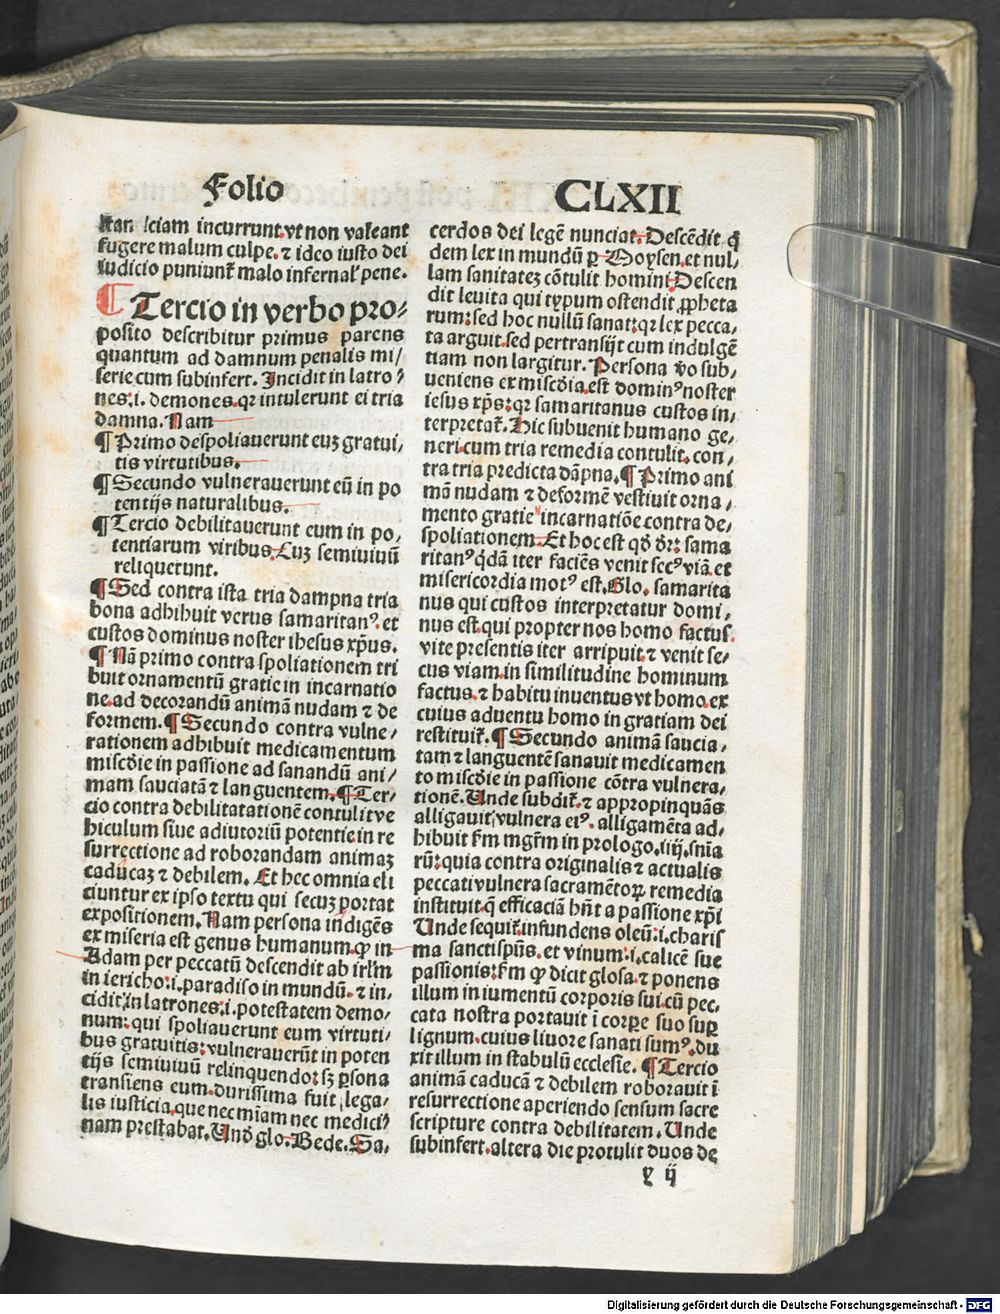 Folio CLXII
incurrunt. vt non valeant
fugere malum culpe. ⁊ ideo iusto dei
iudicio puniunt᷑ malo infernal᷑ pene.
¶ Tercio in verbo pro⸗
posito describitur primus parens
quantum ad damnum penalis mi/
serie cum subinfert. Incidit in latro⸗
nes: .i. demones. qꝛ intulerunt ei tria
damna. Nam
¶ Primo despoliauerunt euꝫ gratui/
tis virtutibus.
¶ Secundo vulnerauerunt eū in po
tentijs naturalibus.
¶ Tercio debilitauerunt eum in po/
tentiarum viribus. Cuꝫ semiuiuū
reliquerunt.
¶ Sed contra ista tria dampna tria
bona adhibuit verus samaritanꝰ. et
custos dominus noster ihesus xp̄us.
¶ Nā primo contra spoliationem tri
buit ornamentū gratie in incarnatio
ne. ad decorandū animā nudam ⁊ de
formem. ¶ Secundo contra vulne/
rationem adhibuit medicamentum
miscd̄ie in passione ad sanandū ani/
mam sauciatā ⁊ languentem. ¶ Ter/
cio contra debilitatationē contulit ve
hiculum siue adiutoriū potentie in re
surrectione ad roborandam animaꝫ
caducaꝫ ⁊ debilem. Et hec omnia eli
ciuntur ex ipso textu qui secuꝫ portat
expositionem. Nam persona indigēs
ex miseria est genus humanum. ꝙ in
Adam per peccatū descendit ab irl̄m
in iericho: .i. paradiso in mundū. ⁊ in/
cidit in latrones: .i. potestatem demo/
num: qui spoliauerunt eum virtuti/
bus gratuitis: vulnerauerūt in poten
tijs semiuiuū relinquendo: sꝫ ꝑsona
transiens eum. durissima fuit lega/
lis iusticia. que nec miam nec medici⸗
nam prestabat. Vnd̄ glo. Bede. Sa/
cerdos dei legē nunciat. Descēdit q̄
dem lex in mundū ꝑ Moysen. et nul/
lam sanitateꝫ cōtulit homini. Descen
dit leuita qui typum ostendit ꝓpheta
rum: sed hoc nullū sanat: qꝛ lex pecca/
ta arguit. sed pertransijt cum indulgē
tiam non largitur. Persona v̄o sub/
ueniens ex miscd̄ia. est dominꝰ noster
iesus xp̄s: qꝛ samaritanus custos in/
terpretat᷑. Hic subuenit humano ge/
neri. cum tria remedia contulit. con/
tra tria predicta dāpna. ¶ Primo ani
mā nudam ⁊ deformē vestiuit orna/
mento gratie incarnatiōe contra de/
spoliationem. Et hoc est qd̄ dr̄: sama
ritanꝰ qdā iter faciēs venit secꝰ viā. et
misericordia motꝰ est. Glo. samarita
nus qui custos interpretatur domi/
nus est. qui propter nos homo factus
vite presentis iter arripuit. ⁊ venit se/
cus viam. in similitudine hominum
factus. ⁊ habitu inuentus vt homo. ex
cuius aduentu homo in gratiam dei
restituit᷑. ¶ Secundo animā saucia/
tam ⁊ languentē sanauit medicamen
to miscd̄ie in passione cōtra vulnera/
tionē. Vnde subdit᷑. ⁊ appropinquās
alligauit vulnera eiꝰ. alligamēta ad/
hibuit ẜm mgr̄m in prologo .iiij. sn̄ia
rū: quia contra originalis ⁊ actualis
peccati vulnera sacramētoꝝ remedia
instituit. q̄ efficaciā hn̄t a passione xp̄i
Vnde sequit᷑. infundens oleū: .i. charis
ma sancti sp̄us. et vinum: .i. calicē sue
passionis: ẜm ꝙ dicit glosa. ⁊ ponens
illum in iumentū corporis sui. cū pec/
cata nostra portauit ī corꝑe suo suꝑ
lignum. cuius liuore sanati sumꝰ. du
xit illum in stabulū ecclesie. ¶ Tercio
animā caducā ⁊ debilem roborauit ī
resurrectione aperiendo sensum sacre
scripture contra debilitatem. Vnde
subinfert. altera die protulit duos de
y ij
Digitalisierung gefördert durch die Deutsche Forschungsgemeinschaft - DFG